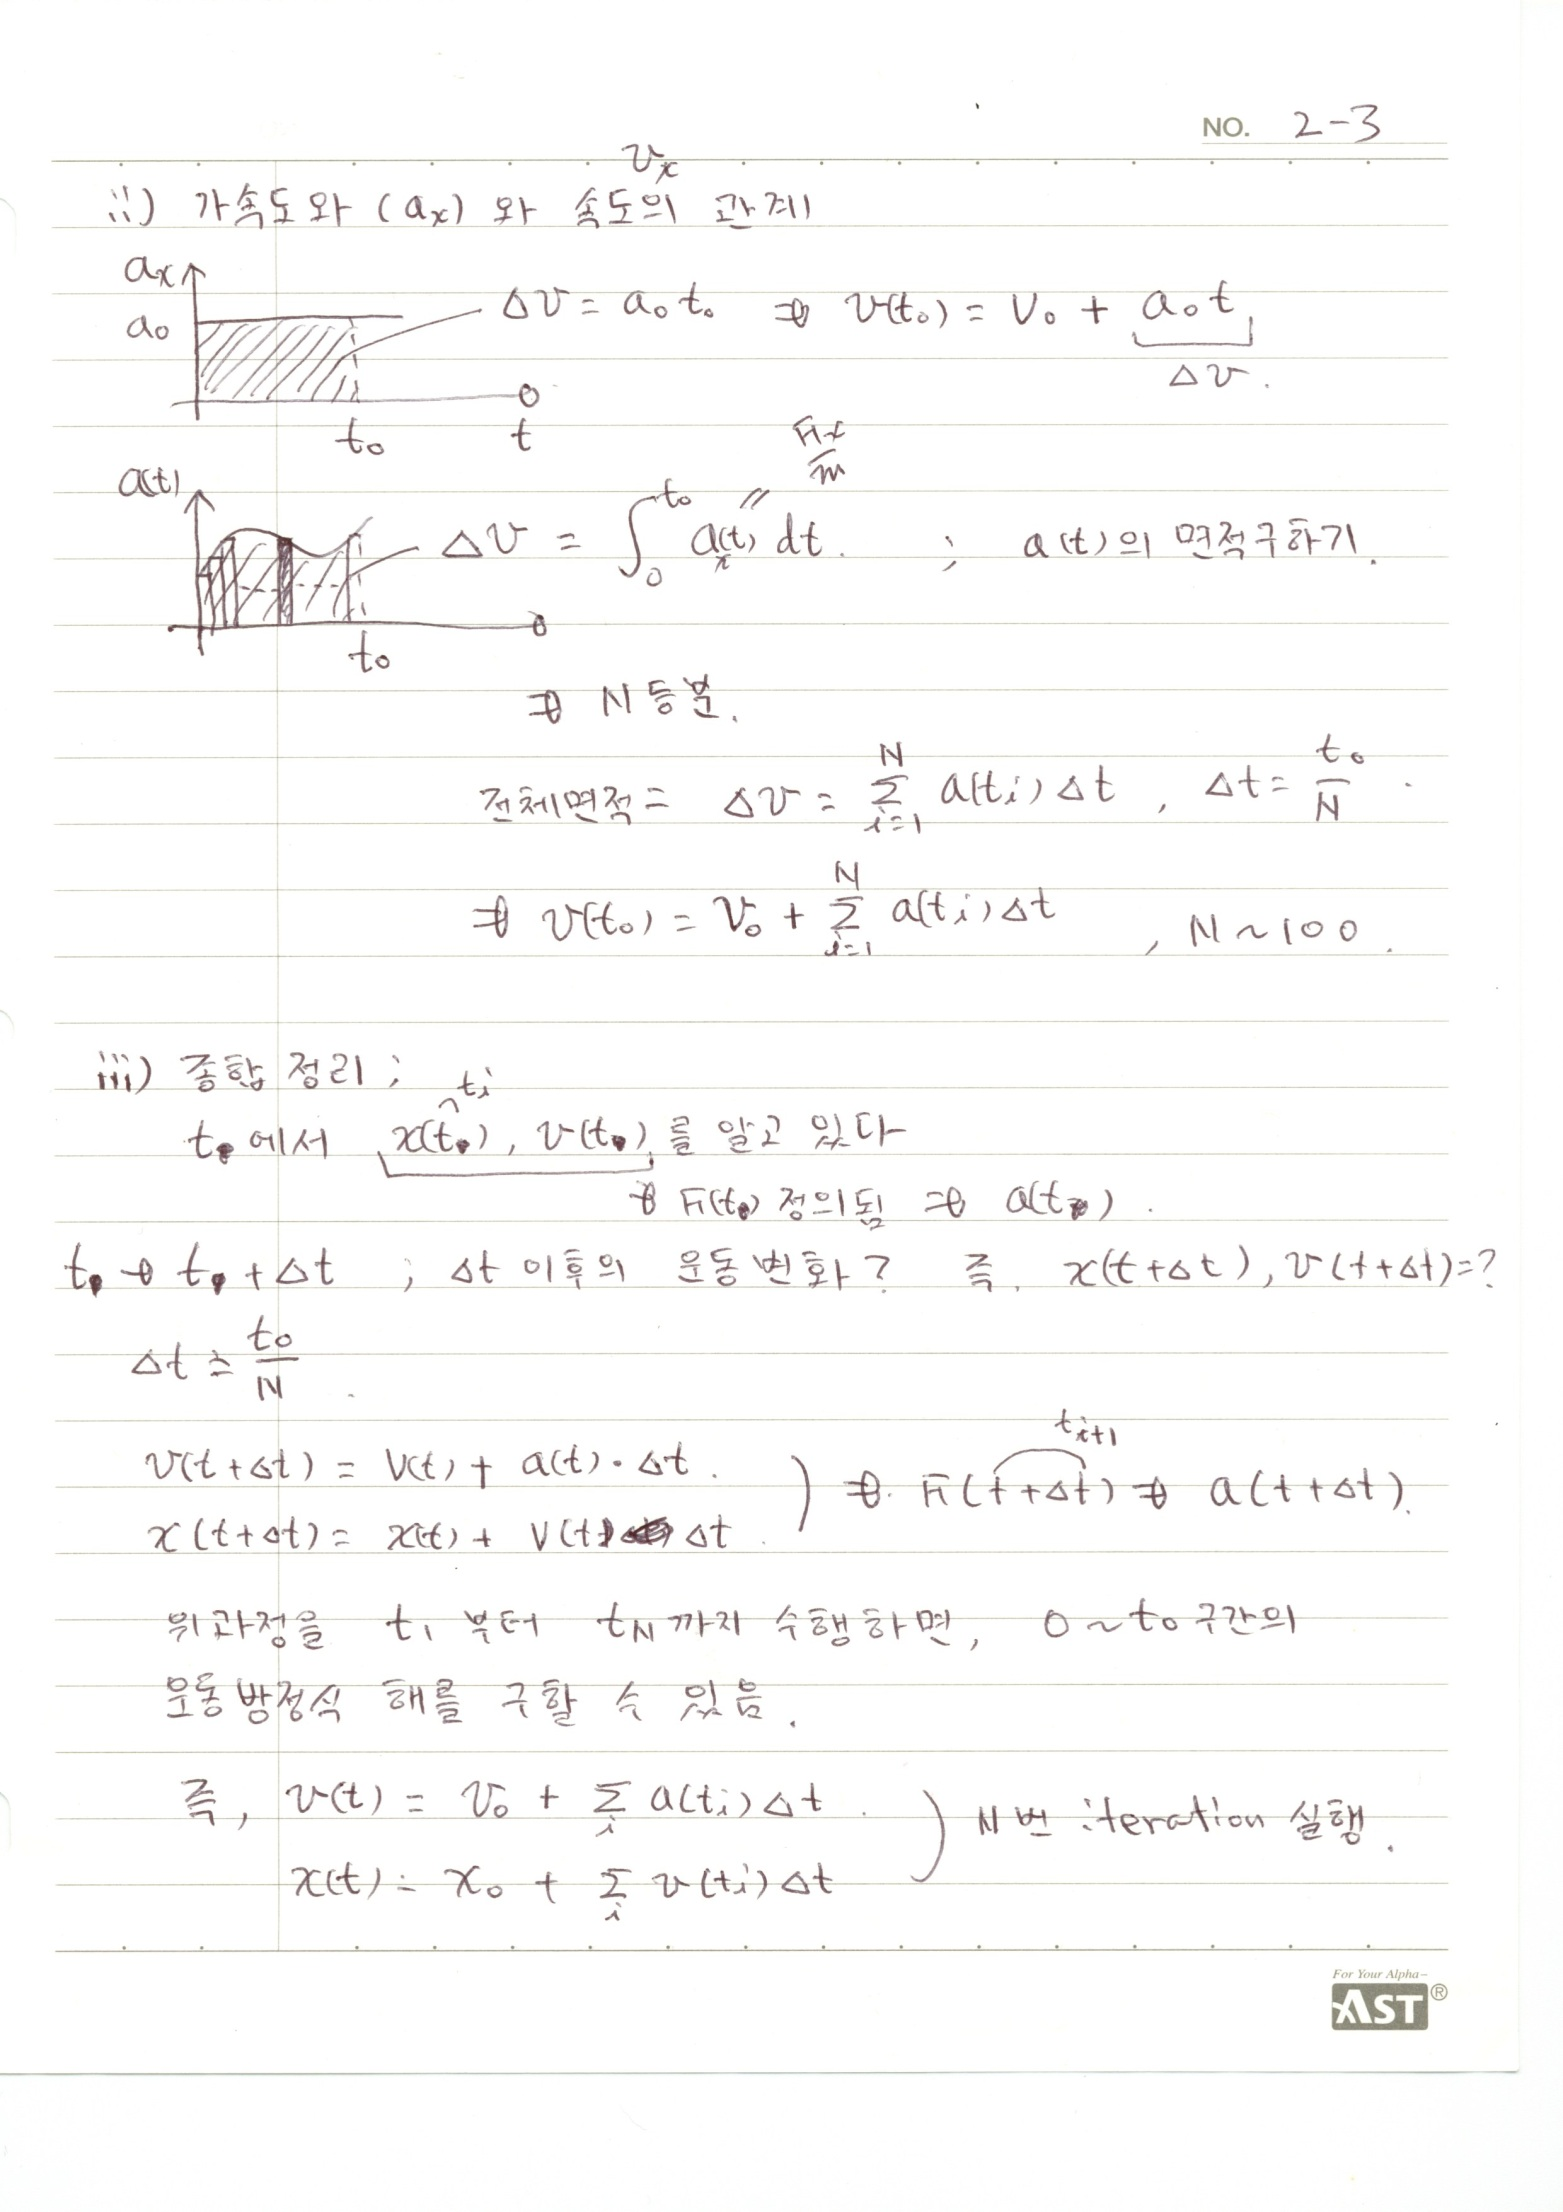 NO. 2-3
ii) 가속도와 (ax) 와 속도의 관계 vx
ax
a0
Δv = a0 t0 ⇒ v(t0) = v0 + a0t
Δv.
t0 t
Fx/m
a(t)
Δv = ∫₀^t0 ax(t) dt. ; a(t)의 면적구하기.
t0
⇒ N등분.
전체면적 = Δv = Σ_{i=1}^{N} a(ti)Δt, Δt = t0/N.
⇒ v(t0) = v0 + Σ_{i=1}^{N} a(ti)Δt, N~100.
iii) 종합 정리;
ti
t에서 x(t), v(t)를 알고 있다
→ F(t) 정의됨 ⇒ a(t).
t → t+Δt ; Δt 이후의 운동변화? 즉, x(t+Δt), v(t+Δt)=?
Δt = t0/N.
ti+1
v(t+Δt) = v(t) + a(t)·Δt.
x(t+Δt) = x(t) + v(t) Δt. ) ⇒ F(t+Δt) ⇒ a(t+Δt).
위과정을 t1 부터 tN까지 수행하면, 0~t0구간의
운동방정식 해를 구할 수 있음.
즉, v(t) = v0 + Σi a(ti)Δt.
x(t) = x0 + Σi v(ti)Δt ) N번 iteration 실행.
For Your Alpha-
AST®